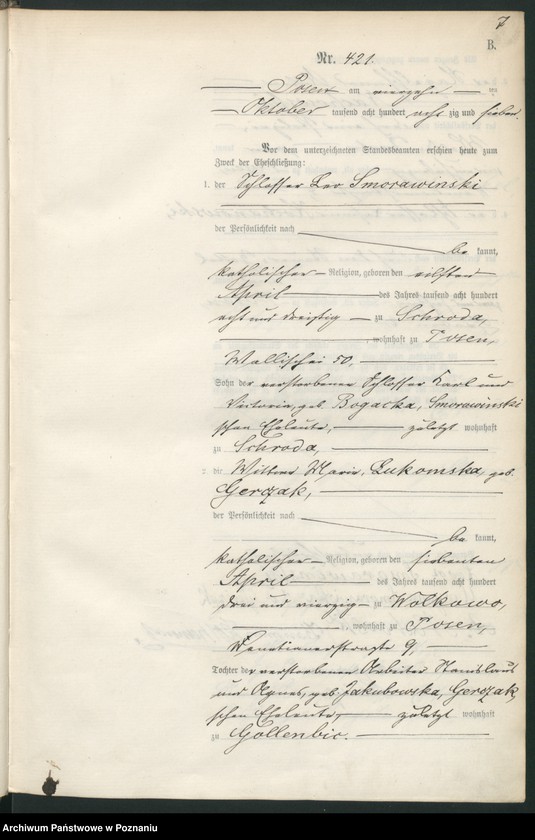 7
B.
Nr. 421.
Posen am vierzehn ten
Oktober tausend acht hundert acht zig und sieben.
Vor dem unterzeichneten Standesbeamten erschien heute zum
Zweck der Eheschließung:
1. der Schlosser Leo Smorawinski
der Persönlichkeit nach
be kannt,
katholischer Religion, geboren den eilften
April des Jahres tausend acht hundert
acht und dreißig zu Schroda,
, wohnhaft zu Posen,
Wallischei 50,
Sohn der verstorbenen Schlosser Karl und
Victoria, geb. Bogacka, Smorawinski
schen Eheleute, zuletzt wohnhaft
zu Schroda,
2. die Wittwe Marie Lukomska, geb.
Gerczak,
der Persönlichkeit nach
be kannt,
katholischer Religion, geboren den siebenten
April des Jahres tausend acht hundert
drei und vierzig zu Wolkowo,
, wohnhaft zu Posen,
Venetianerstraße 9,
Tochter der verstorbenen Arbeiter Stanislaus
und Agnes, geb. Jakubowska, Gerczak
schen Eheleute, zuletzt wohnhaft
zu Gollenbic.
Archiwum Państwowe w Poznaniu